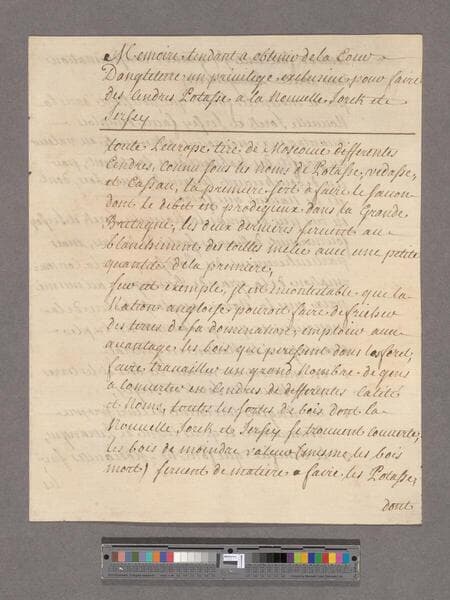 Memoire tendant a obtenir de la Cour
Dangleterre un privilege exclusive pour faire
des Cendres Potasse a la Nouvelle Jorck et
Jersey
toute Leurope tire de Moscovie differentes
Cendres, connu sous les noms de Potasse, vedasse,
et Cassau, la premiere sert a faire le savon
dont le debit en prodigieux dans la Grande
Britagne, les deux dernieres servent au
blanchiment des toilles melée avec une petite
quantité de la premiere,
sur cet exemple, il est incontestable que la
Nation angloise pouroit faire defricher
des terres de sa domination, emploier avec
avantage les bois qui perissent dans les forets
faire travailler un grand Nombre de gens
a Convertir en Cendres de differentes calité
et Noms, toutes les sortes de bois dont la
Nouvelle Jorck et Jersey se trouvent couverte,
les bois de moindre valeur (mesme les bois
mort) servent de matiere a faire les Potasse,
dont